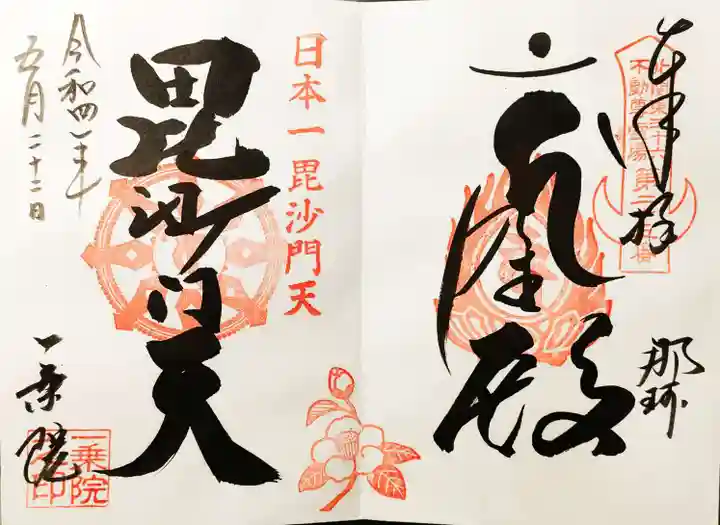 奉拝
北関東三十六
不動尊霊場第
殿
那珂
日本一毘沙門天
毘沙門天
令和四年
五月二十二日
一乗院
一乗院
之印